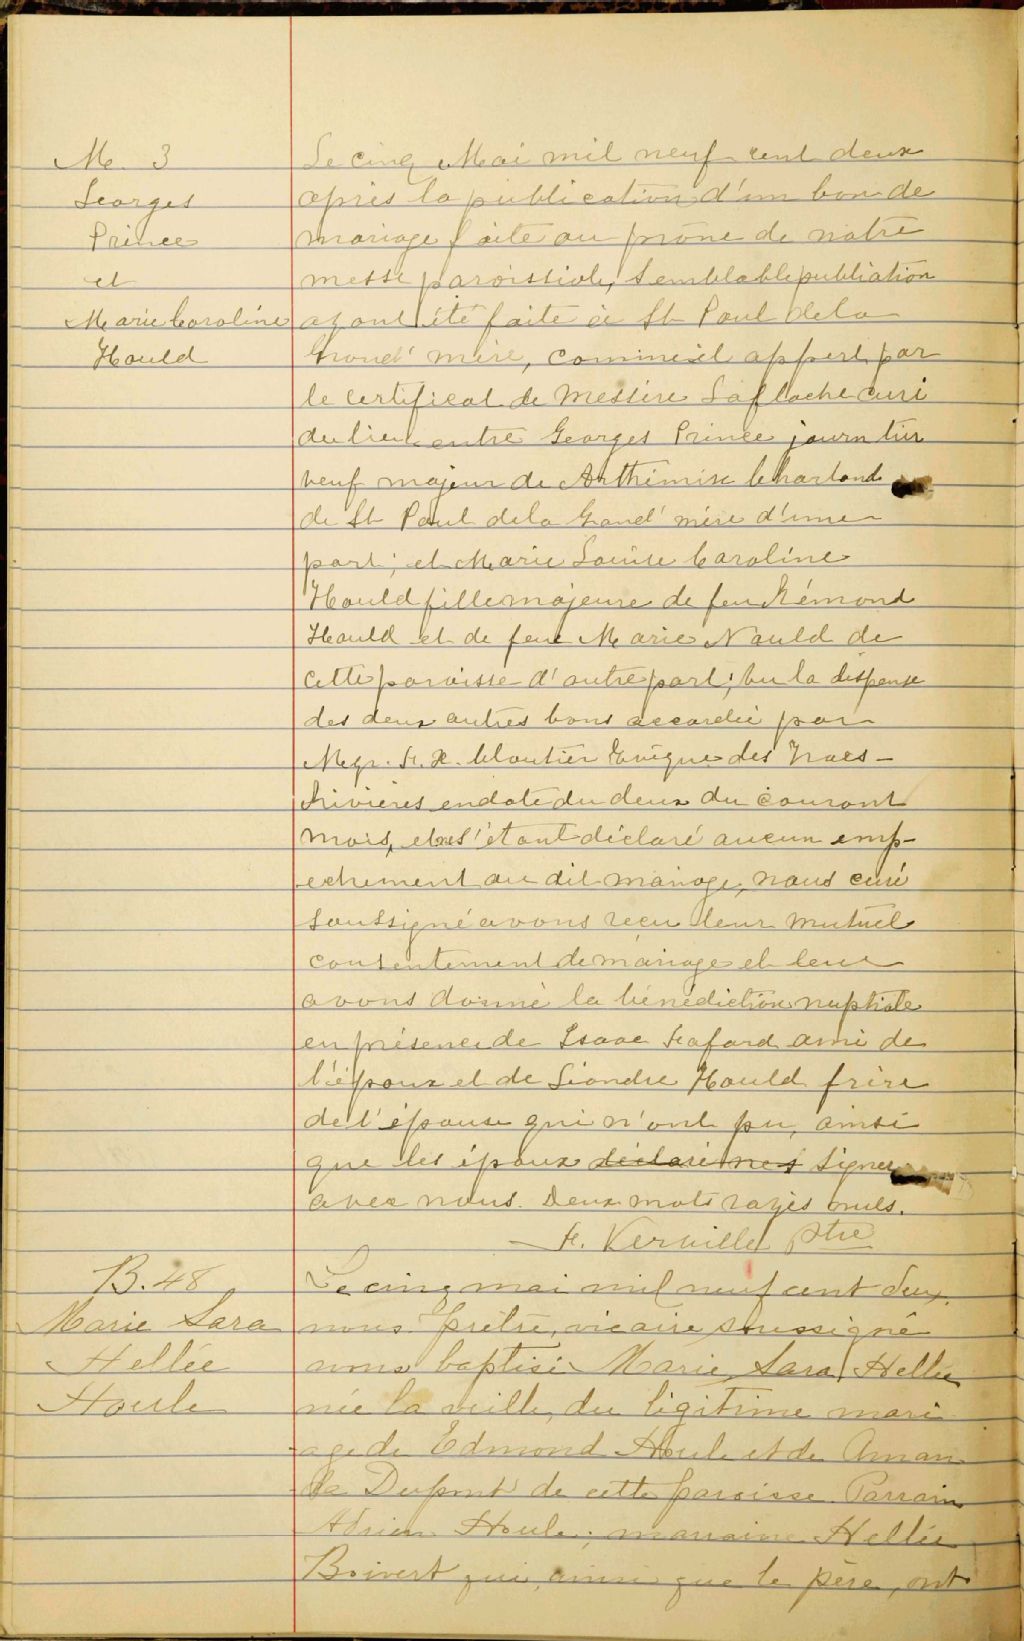 M. 3
Georges
Prince
et
Marie Caroline
Hould
Le cinq Mai mil neuf cent deux
après la publication d'un ban de
mariage faite au prône de notre
messe paroissiale, semblable publiation
ayant été faite à St Paul de la
Grand' mère, comme il appert par
le certificat de Messire Laflèche curé
du lieu entre Georges Prince journ
veuf majeur de Arthémise Chartand
de St Paul de la Grand' mère d'une
part; et Marie Louise Caroline
Hould fille majeure de feu Rémond
Hould et de feue Marie Nauld de
cette paroisse d'autre part; vu la dispense
des deux autres bans accordée par
Mgr. F. X. Cloutier Evêque des Trois-
Rivières en date du deux du courant
mois, et ne s'étant déclaré aucun emp-
echement au dit mariage, nous curé
soussigné avons reçu leur mutuel
consentement de mariage et leur
avons donné la bénédiction nuptiale
en présence de Isaac Lafard ami de
l'époux et de Liandre Hould frère
de l'épouse qui n'ont pu, ainsi
que les époux signer
avec nous. Deux mots rayés nuls.
F. Verville Ptre
B. 48
Marie Sara
Hellée
Houle
Le cinq mai mil neuf cent deux,
nous prêtre, vicaire soussigné
avons baptisé Marie Sara Hellée
née la veille, du légitime mari
age de Edmond Houle et de Aman
da Dupont de cette paroisse. Parrain
Adrien Houle; marraine Hellée
Boivert qui, ainsi que le père, ont